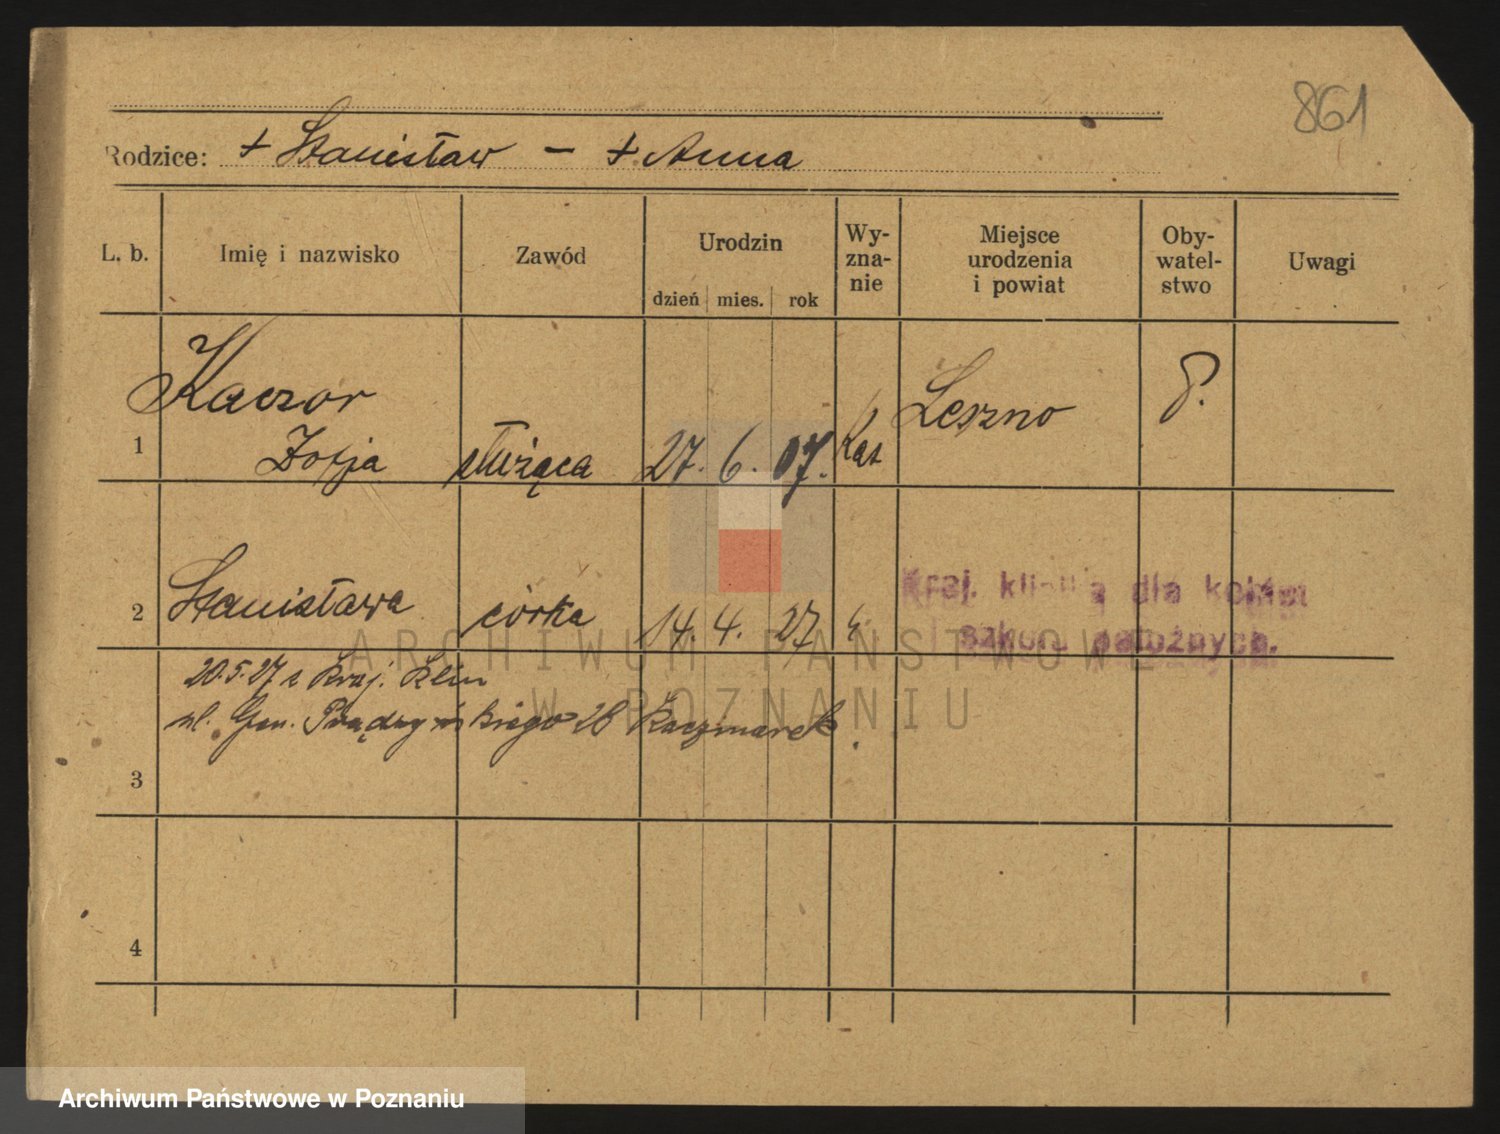 861
Rodzice: + Stanisław — + Anna
L. b. Imię i nazwisko Zawód Urodzin Wy-zna-nie Miejsce urodzenia i powiat Oby-watel-stwo Uwagi
dzień mies. rok
Kaczor
1 Zofja służąca 27. 6. 07. Kat Leszno P.
2 Stanisława córka 14. 4. 27 k. Kraj. klinika dla kobiet
i szkoła położnych.
20.5.27 z Kraj. Klin
ul. Gen. Prądzyńskiego 28 Kaczmarek.
3
4
ARCHIWUM PAŃSTWOWE
W POZNANIU
Archiwum Państwowe w Poznaniu